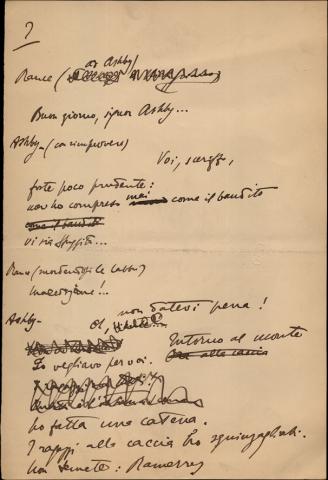 7
ad Ashby)
Rance (
Buon giorno, signor Ashby...
Ashby - (con rimprovero)
Voi, sceriffo,
foste poco prudente:
non ho compreso mai come il bandito
come il bandito
vi sia sfuggito...
Rance (mordendosi le labbra)
maledizione!..
non datevi pena!
Ashby -
Intorno al monte
Io vegliavo per voi.
alla caccia
ho fatto una catena.
I ragazzi alla caccia ho sguinzagliati.
Non temete: Ramerrez